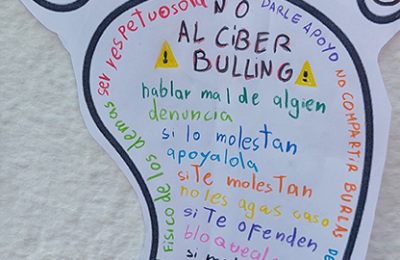 NO
AL CiBER
BULLING
hablar mal de algien
denuncia
si lo molestan
apoyalola
si Te molestan
no les agas caso
si Te ofenden
bloqueale
si
ser respetuosola
DARLE APOYO
NO COMPARTIR BURLAS DE
FISICO de los demas